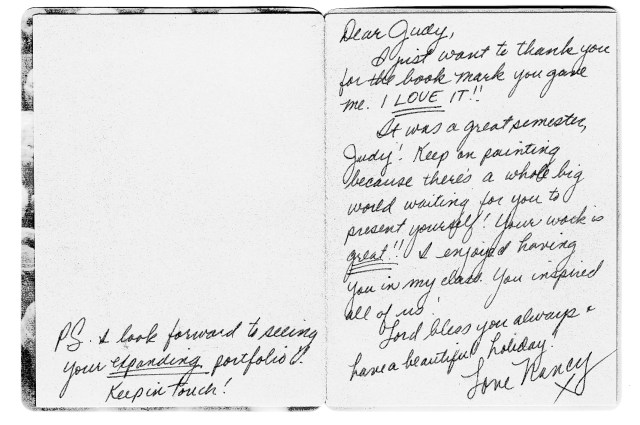 Dear Judy,
I just want to thank you
for the book mark you gave
me. I LOVE IT!!
It was a great semester,
Judy! Keep on painting
because there's a whole big
world waiting for you to
present yourself! Your work is
great!! I enjoyed having
you in my class. You inspired
all of us!
Lord bless you always &
have a beautiful holiday!
Love Nancy
X
P.S. I look forward to seeing
your expanding portfolio!
Keep in touch!